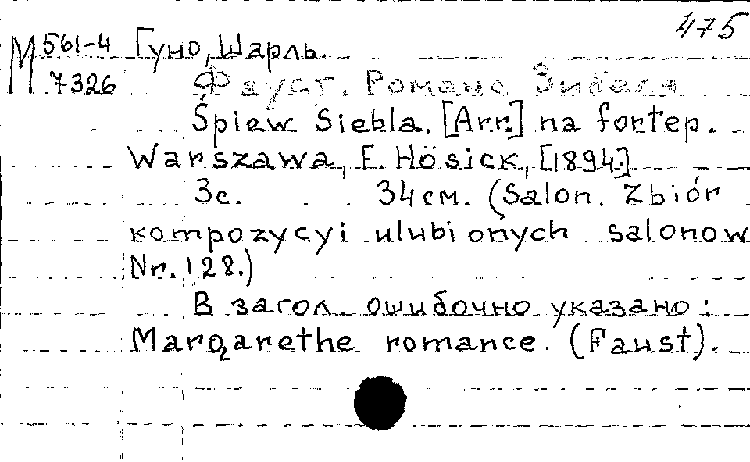 475
М 561-4 Гуно, Шарль.
7326 Фауст. Романс Зибеля
Śpiew Siebla. [Arr.] na fortep.
Warszawa, F. Hösick, [1894.]
3с. 34см. (Salon. Zbiór
kompozycyi ulubionych salonow
Nr. 128.)
В загол. ошибочно указано:
Margarethe romance. (Faust).